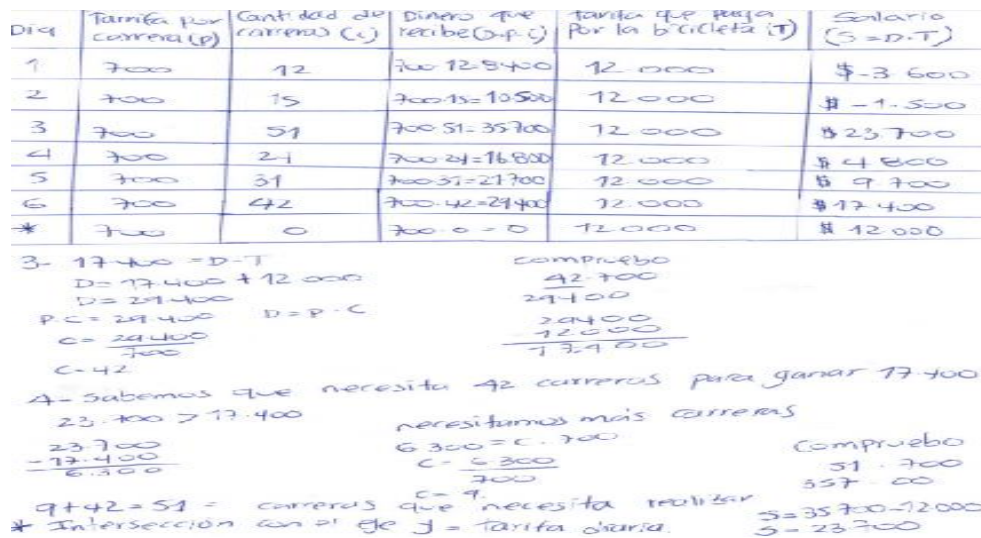 Dia | Tarrifa por carrera (p) | Cantidad de carreras (c) | Dinero que recibe (D=p.c) | tarifa que paga Por la bicicleta (T) | Salario (S=D-T)
1 | 700 | 12 | 700·12=8400 | 12.000 | $-3 600
2 | 700 | 15 | 700·15=10500 | 12.000 | $-1.500
3 | 700 | 51 | 700·51=35700 | 12.000 | $23.700
4 | 700 | 24 | 700·24=16.800 | 12.000 | $4 800
5 | 700 | 31 | 700·31=21700 | 12.000 | $9 700
6 | 700 | 42 | 700·42=29400 | 12.000 | $17 400
* | 700 | 0 | 700·0=0 | 12000 | $12 000
3- 17.400 = D-T
D= 17.400 + 12 000
D= 29.400
P.C = 29 400 D=P.C
C= 29.400
700
C-42
compruebo
42.700
29400
29400
-12000
17400
4- Sabemos que necesita 42 carreras para ganar 17.400
23.700 > 17.400
23.700
-17.400
6.300
necesitamos más carreras
6 300 = C. 700
C- 6 300
700
C= 9.
Compruebo
51 . 700
357 00
9+42=51 = carreras que necesita realizar
S=35700-12.000
* Intersección con el eje y = Tarifa diaria.
S= 23700